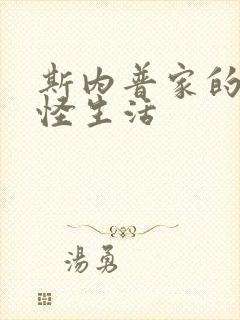 斯内普家的
怪生活
湯勇